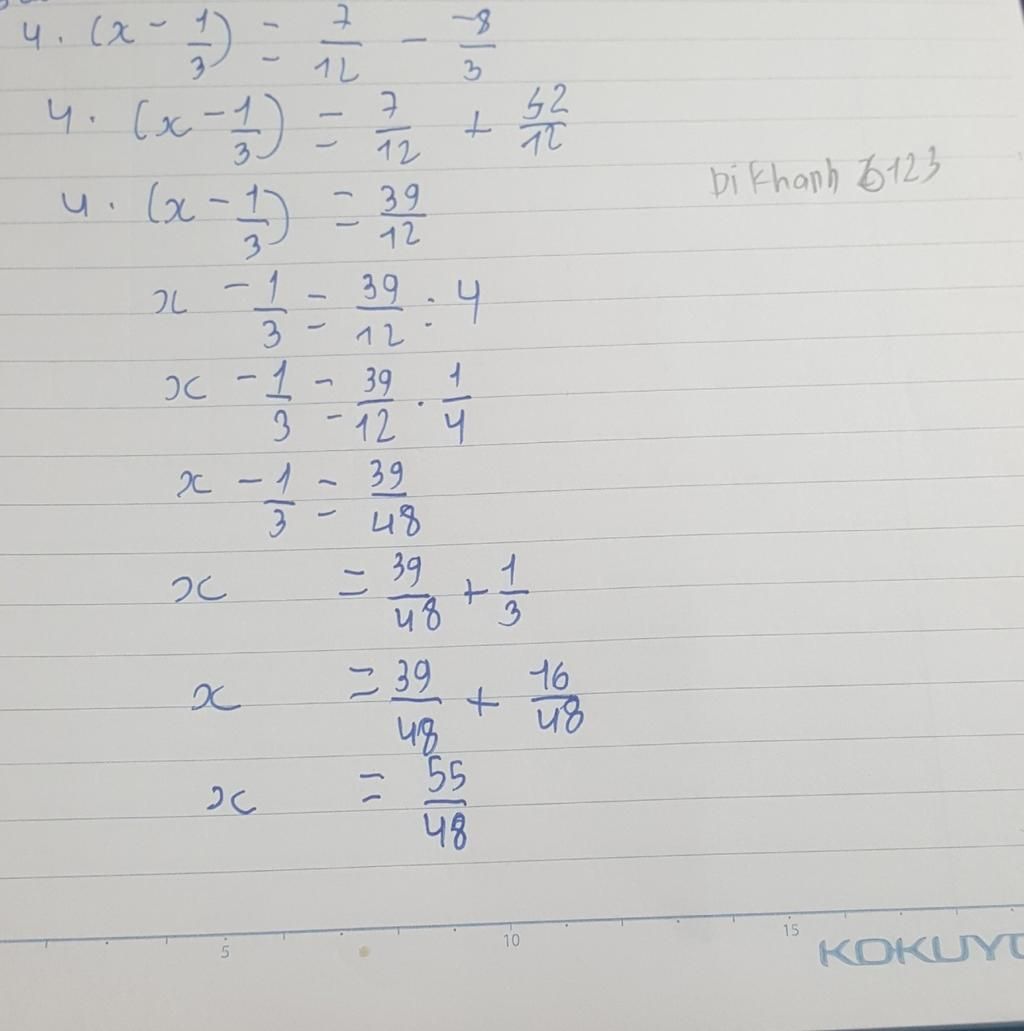 4. (x - 1/3) = 7/12 - -8/3
4. (x - 1/3) = 7/12 + 52/12
Di Khanh 6123
4. (x - 1/3) = 39/12
x - 1/3 = 39/12 : 4
x - 1/3 = 39/12 . 1/4
x - 1/3 = 39/48
x = 39/48 + 1/3
x = 39/48 + 16/48
x = 55/48
5 10 15
KOKUYO